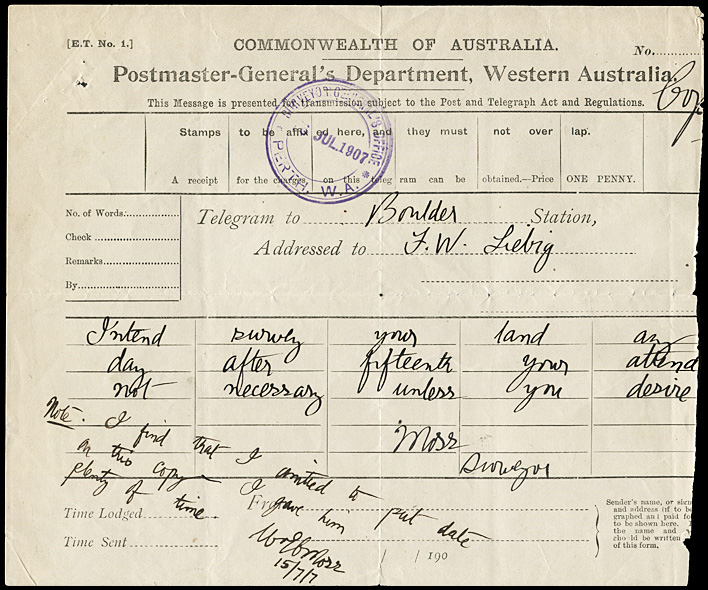 [E.T. No. 1.]
COMMONWEALTH OF AUSTRALIA.
No.
Postmaster-General's Department, Western Australia.
This Message is presented for transmission subject to the Post and Telegraph Act and Regulations.
Copy
SURVEYOR GENERAL'S OFFICE
JUL 1907
PERTH. W.A.
Stamps to be affixed here, and they must not over lap.
A receipt for the charges on this telegram can be obtained.—Price ONE PENNY.
No. of Words
Check
Remarks
By
Telegram to Boulder Station,
Addressed to F. W. Liebig
Intend survey your land any
day after fifteenth your attend
not necessary unless you desire
Moss
Surveyor
Note: I find that I omitted to put date
on this copy I gave him
plenty of time.
WJMoss
15/7/7
From
Time Lodged
Time Sent
/ / 190
Sender's name, or sign
and address (if to be
graphed and paid for
to be shown here.
the name and
should be written
of this form,